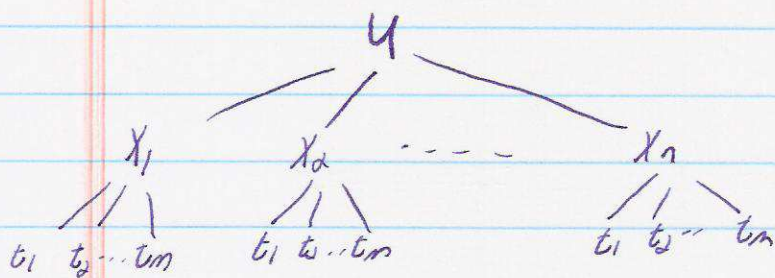 u
x₁ x₂ ---- xₙ
t₁ t₂ ... tₘ t₁ t₂ ... tₘ t₁ t₂ ·· tₘ